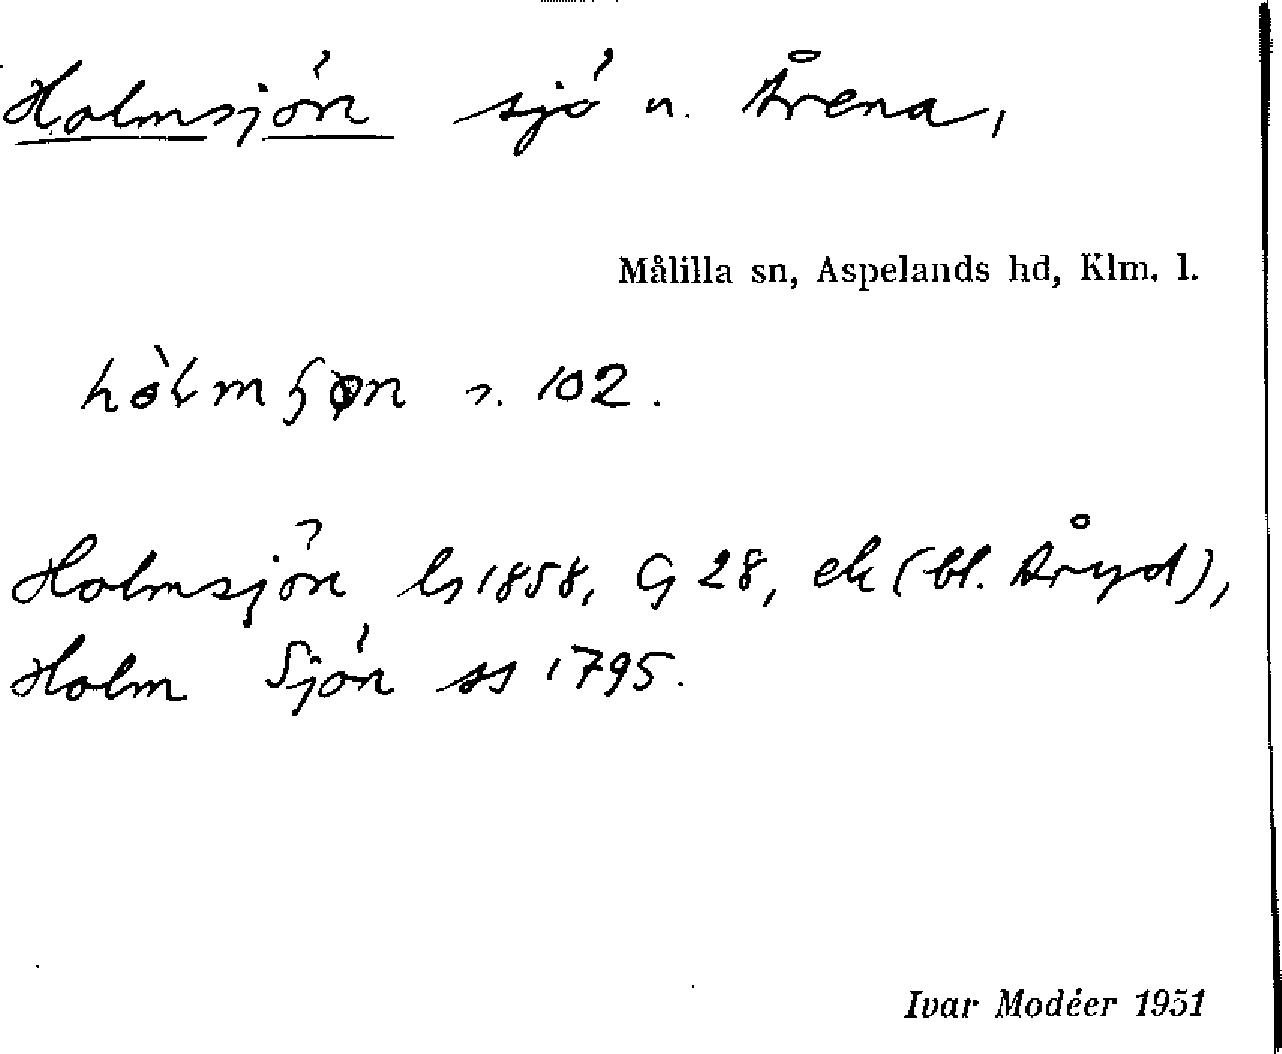 Holmsjön sjö n. Årena,
Målilla sn, Aspelands hd, Klm. l.
Holmsjön ls 1858, G 28, ek (bl. Åryd),
Holm Sjön ss 1795.
Ivar Modéer 1951